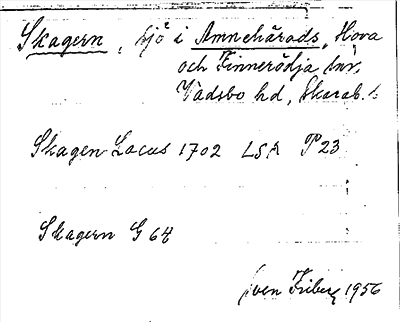 Skagern, sjö i Amnehärads, Hova
och Finnerödja snr,
Vadsbo hd, Skarab. l.
Skagen Lacus 1702 LSA P 23
Skagern G 64
Sven Friberg 1956